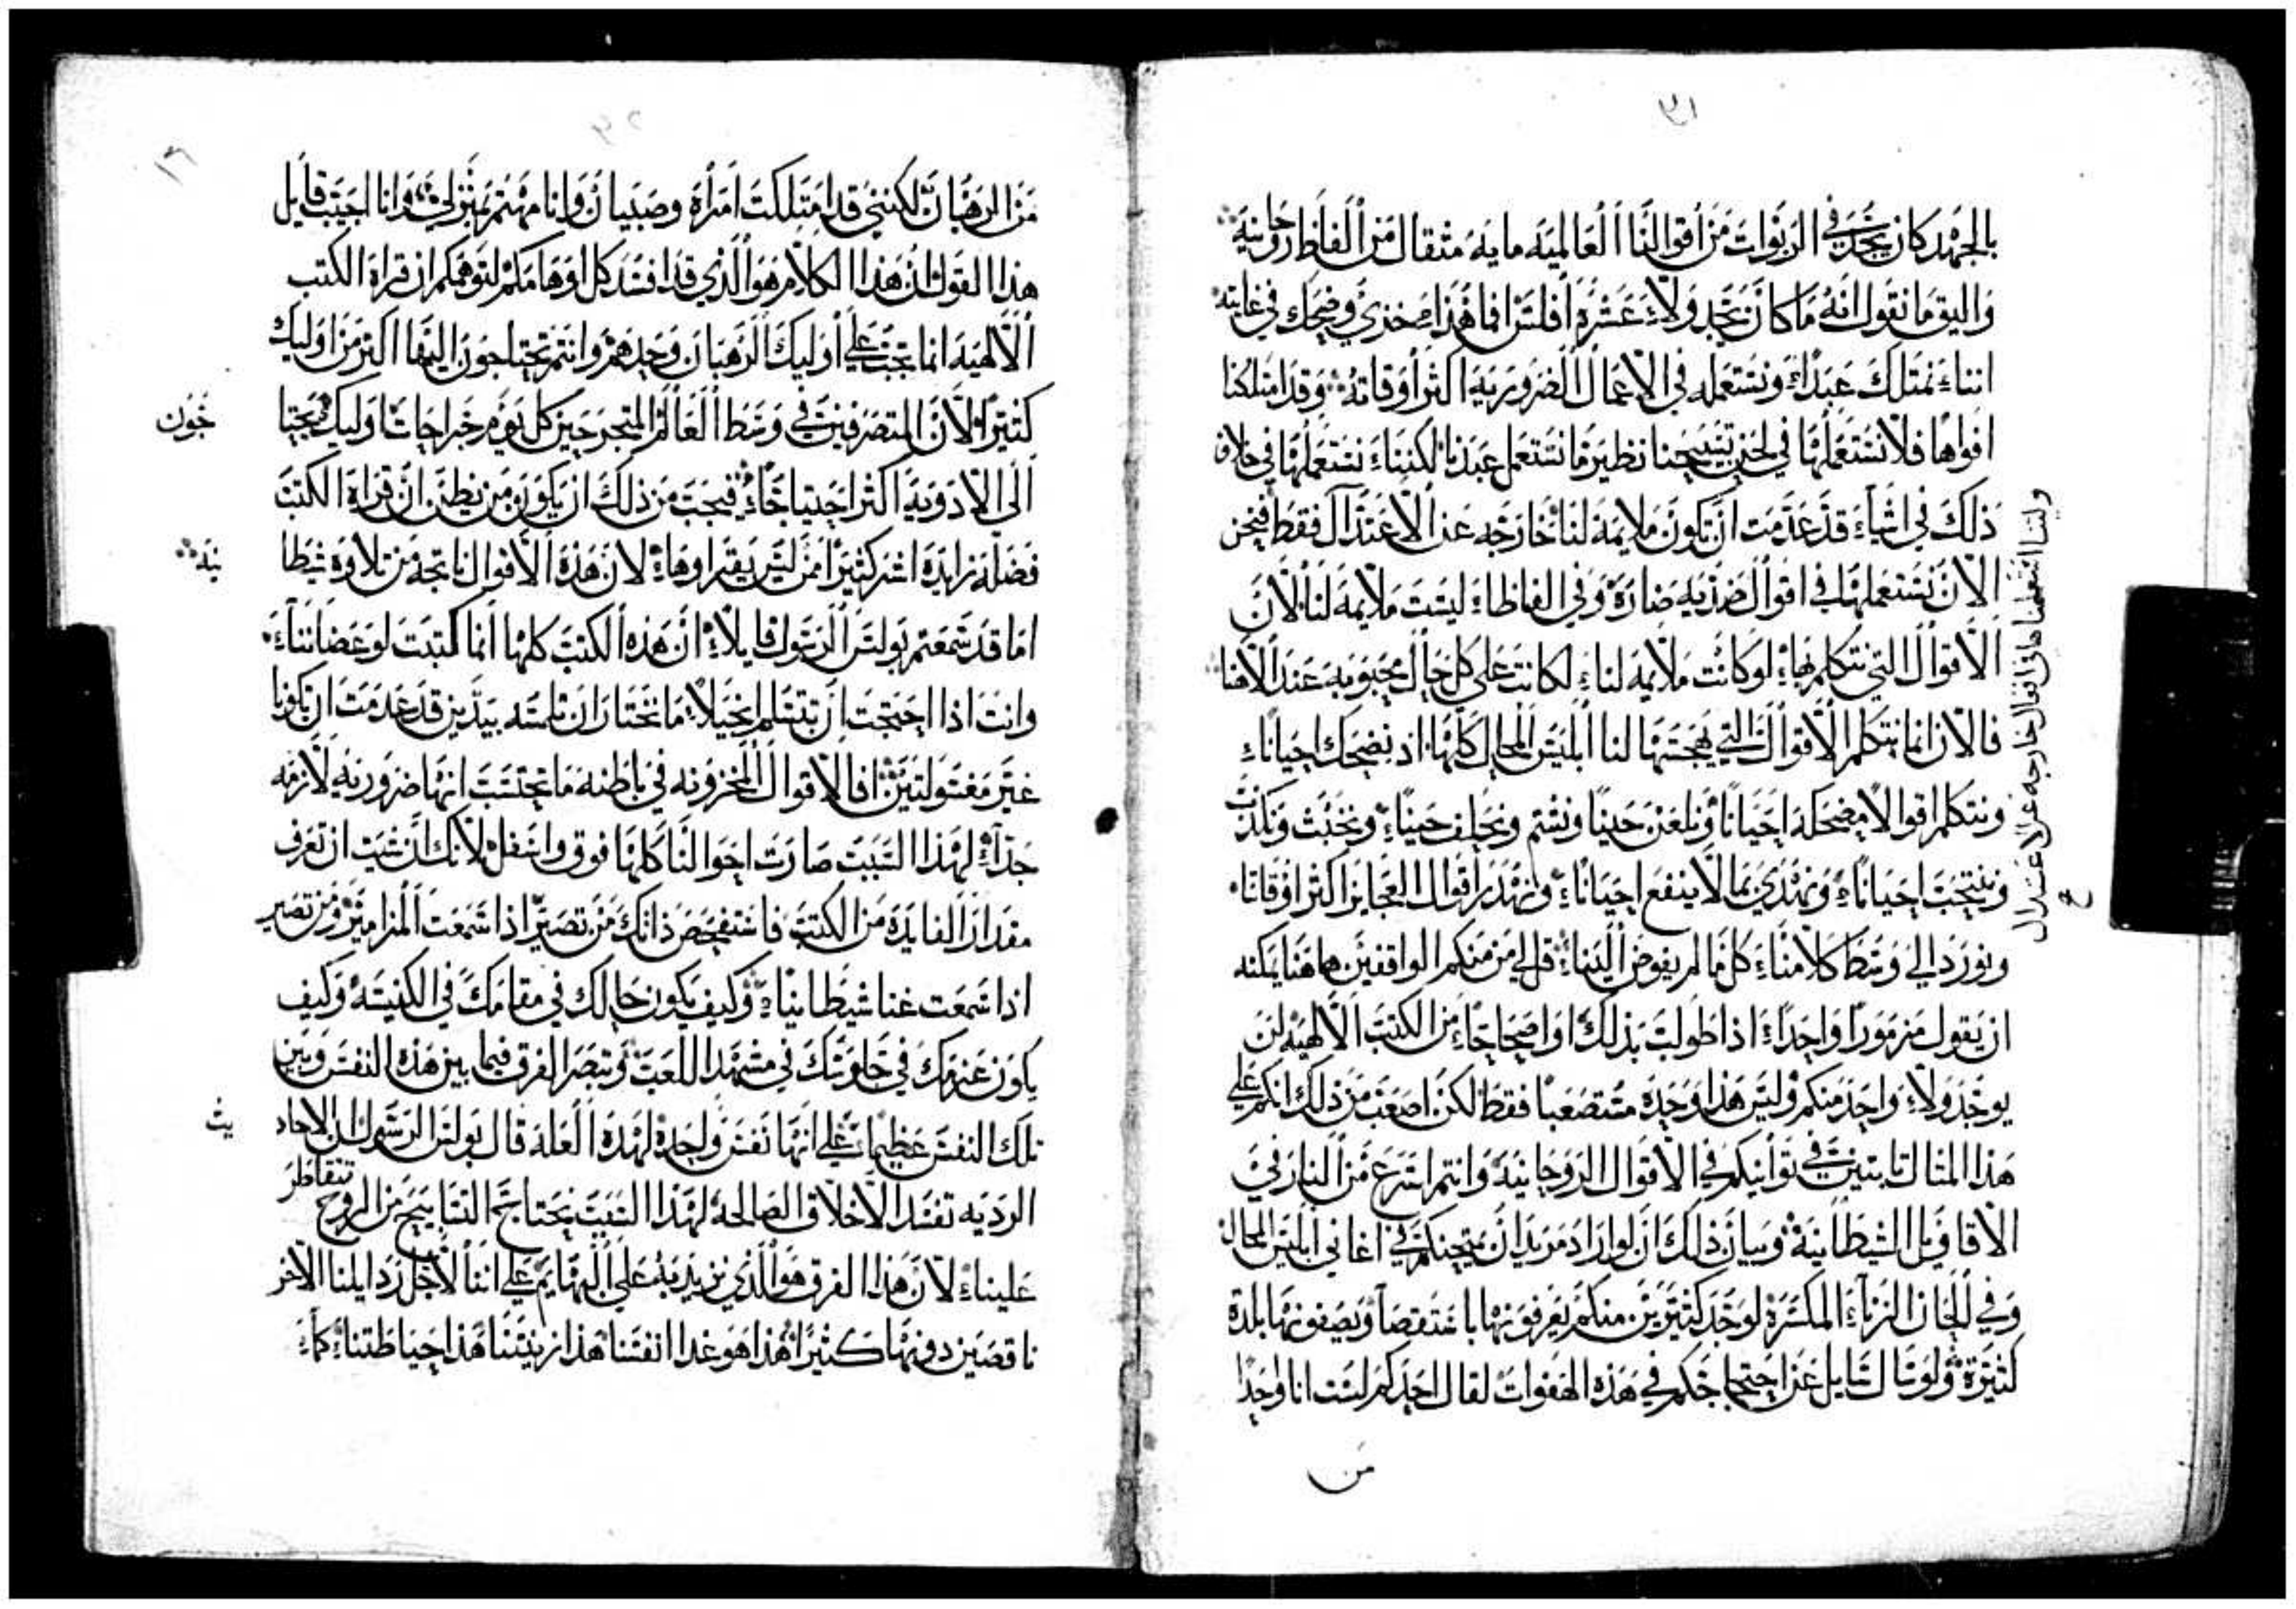 ٣١
بالجهد كان يجد في الربوات من أقوالنا العالمية ماية مثقال من ألفاظ روحانية
واليق ما نقول انه ما كان يجد ولا عشرة أفلس افما هذا مخزي وضحك في غايته
اننا نمتلك عبدا ونستعمله في الاعمال الضرورية اكثر أوقاته وقد امتلكنا
افواها فلا نستعملها في لحن تسبيحنا نظير ما نستعمل عبدنا لكننا نستعملها في خلاف
ذلك في اشياء قد عدمت ان تكون ملايمة لنا خارجه عن الاعتدال فقط فنحن
الان نستعملها في اقوال ضديه ضارة وفي الفاظا ليست ملايمة لنا لان
الأقوال التي نتكلم بها لو كانت ملايمه لنا لكانت على كل حال محبوبة عند الاهنا
فالان انما نتكلم الأقوال التي يهجسها لنا ابليس المحال كلها اذ نضحك احيانا
ونتكلم اقوالا مضحكه احيانا ونلعن حينا ونشتم ونحلف حينا ونخبث ونكذب
وننتحب احيانا ونهذي بما لا ينفع احيانا ونهذر أقوال العجايز اكثر اوقاتنا
ونورد الى وسط كلامنا كل ما لم يفوض الينا قل لي من منكم الواقفين هاهنا يمكنه
ان يقول مزمورا واحدا اذا طولب بذلك او اصحاحا من الكتب الالهية لن
يوجد ولا واحد منكم وليس هذا وحده مستصعبا فقط لكن اصعب من ذلك انكم على
هذا المثال ثابتين في توانيكم في الاقوال الروحانية وانتم اسرع من النار في
الاقاويل الشيطانية وبيان ذلك ان لو اراد مريد ان يمتحنكم في اغاني ابليس المحال
وفي الحان الزناء المكسرة لوجد كثيرين منكم يعرفونها باستقصا ويصفونها بلذة
كثيرة ولو سال سايل عن احتجاجكم في هذه الهفوات لقال احدكم لست انا واحدا
من
من الرهبان لكنني قد امتلكت امرأة وصبيان وانا مهتم بمنزلي وانا اجيب قايل
هذا القول ان هذا الكلام هو الذي قد افسد كل اوهامكم لتوهمكم ان قراة الكتب
الالهيه انما تجب على أوليك الرهبان وحدهم وانتم تحتاجون اليها اكثر من اوليك
كثيرا لان المتصرفين في وسط العالم المتجرحين كل يوم جراحات اوليك يحتا
جون
الى الادوية اكثر احتياجا فيجب من ذلك ان يكون من يظن ان قراة الكتب
فضله زايدة اشر كثيرا ممن ليس يقراوها لان هذه الاقوال ناتجه من تلاوة شيطا
نيه
اما قد سمعتم بولس الرسول قايلا ان هذه الكتب كلها انما كتبت لوعضاننا
وانت اذا احتجت ان تتسلم انجيلا ما تختار ان تلمسه بيدين قد عدمت ان تكونا
غير مغسولتين افالاقوال المخزونه في باطنه ما تحتسب انها ضروريه لازمه
جدا لهذا السبب صارت احوالنا كلها فوق واسفل لانك ان شيت ان تعرف
مقدار الفايدة من الكتب فاستفحص ذاتك من تصير اذا سمعت المزامير ومن تصير
اذا سمعت غنا شيطانيا وكيف يكون حالك في مقامك في الكنيسة وكيف
يكون عزمك في جلوسك في مشهد اللعب وتبصر الفرق فيما بين هذه النفس وبين
تلك النفس عظيما على انها نفس واحدة لهذه العلة قال بولس الرسول ان الاحاد
يث
الرديه تفسد الاخلاق الصالحة لهذا السبب نحتاج التسابيح من الروح تتقاطر
علينا لان هذا الفرق هو الذي نزيد به على البهايم على اننا لاجل رذايلنا الاخر
ناقصين دونها كثيرا هذا هو غدا انفسنا هذا زينتنا هذا حياطتنا كما